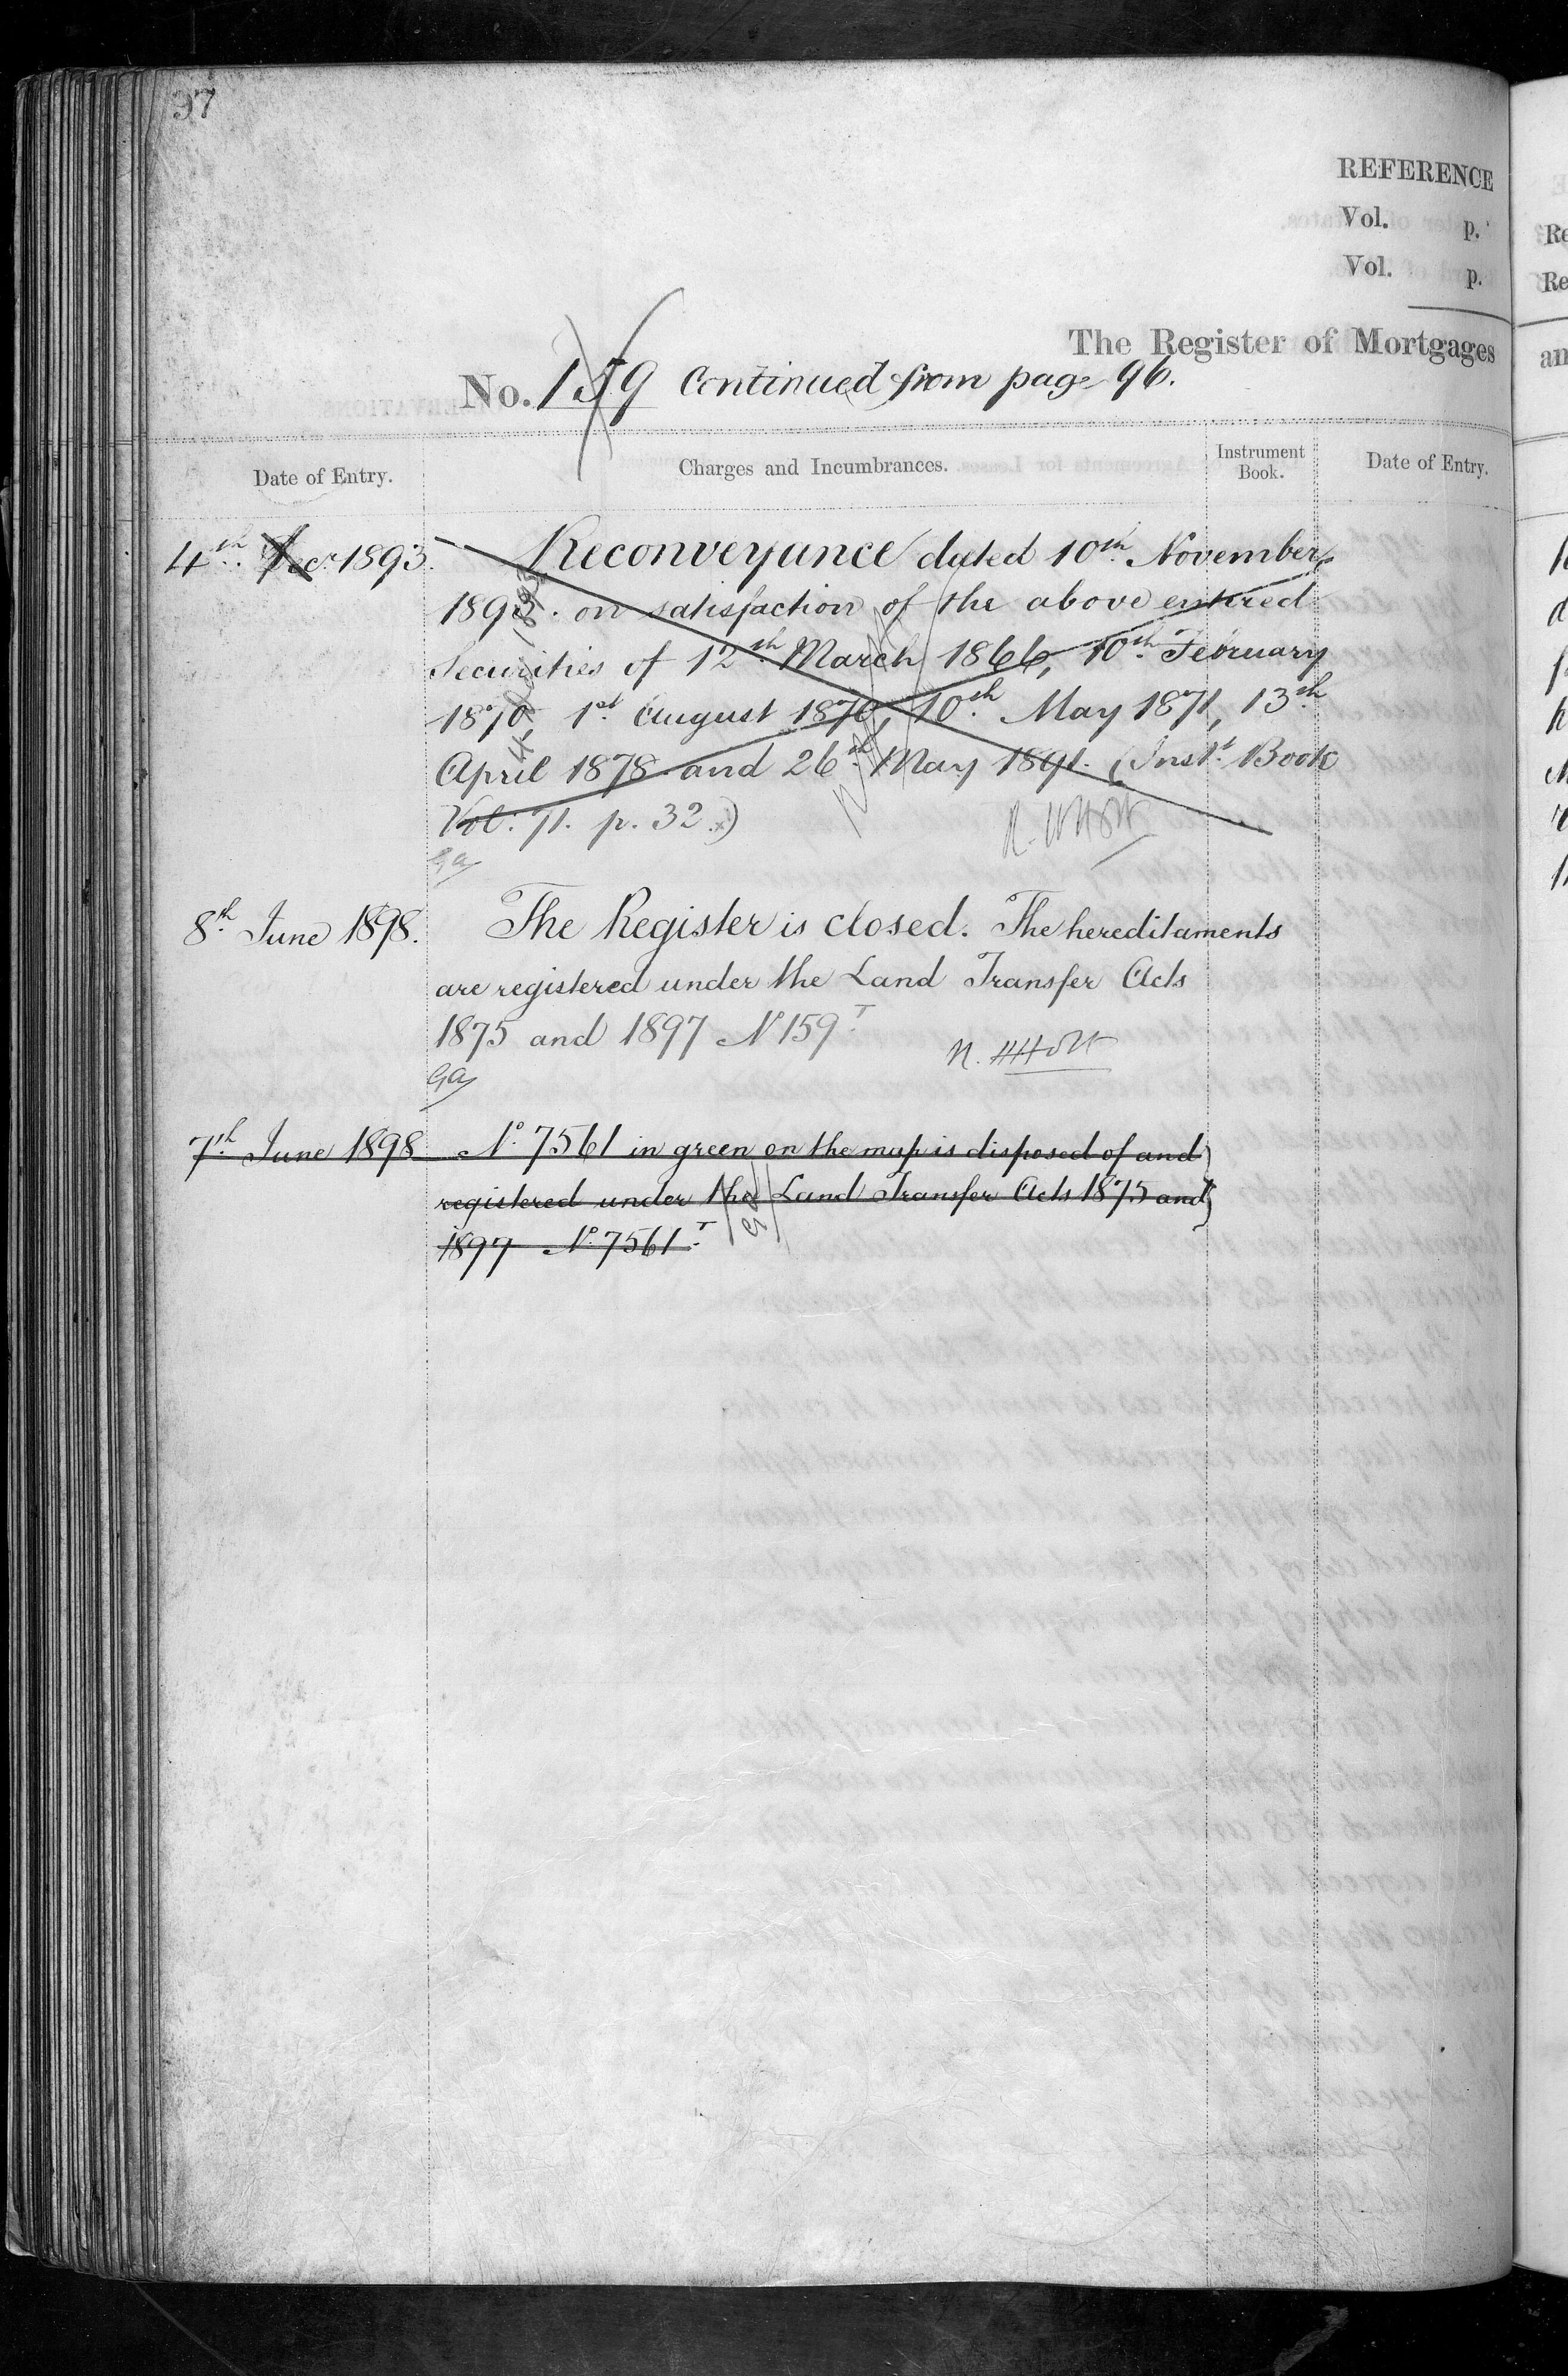 97
REFERENCE
Vol. p.
Vol. p.
The Register of Mortgages
No. 159 Continued from page 96.
Date of Entry. Charges and Incumbrances. Instrument Book. Date of Entry.
4th. Decr 1893. Reconveyance dated 10th. November
1893. on satisfaction of the above entered
Securities of 12th. March 1866, 10th. February
1870, 1st. August 1870, 10th. May 1871, 13th
April 1878 and 26th May 1891. (Inst. Book
Vol. 71. p. 32.)
GA
8th. June 1898. The Register is closed. The hereditaments
are registered under the Land Transfer Acts
1875 and 1897 No 159T.
GA
7th. June 1898 No. 7561 in green on the map is disposed of and
registered under the Land Transfer Acts 1875 and
1897 No. 7561T.
Re
Re
an